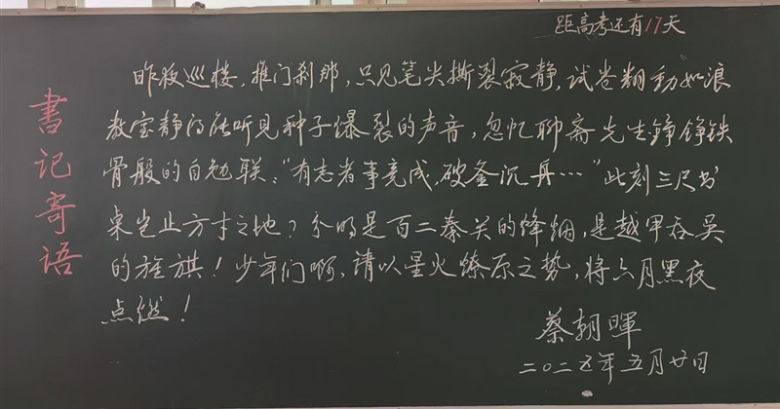 距高考还有17天
書记寄语
昨夜巡楼,推门刹那,只见笔尖撕裂寂静,试卷翻動如浪
教室静的能听见种子爆裂的声音,忽忆聊斋先生铮铮铁
骨般的自勉联:"有志者事竟成,破釜沉舟…"此刻三尺书
桌岂止方寸之地?分明是百二秦关的烽烟,是越甲吞吴
的旌旗!少年们啊,请以星火燎原之势,将六月黑夜
点燃!
蔡朝暉
二〇二五年五月廿日